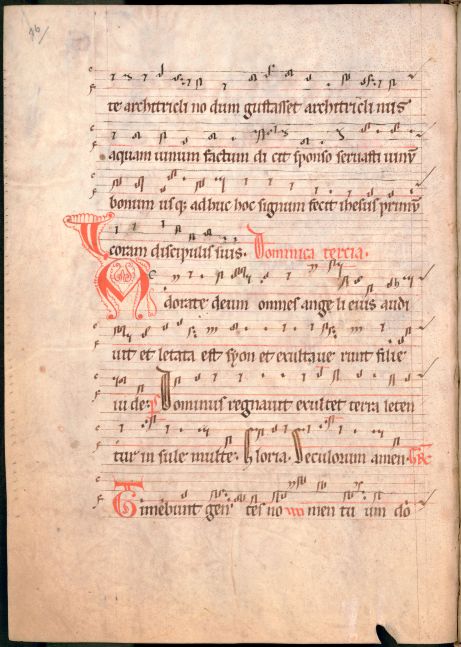 46/
te architricli no dum gustasset architriclinus
aquam uinum factum di cit sponso seruasti uinū
bonum usq; ad huc hoc signum fecit ihesus primū
coram discipulis suis. Dominica tercia.
Adorate deum omnes ange li eius audi
uit et letata est syon et exultaue runt filie
iu de. Dominus regnauit exultet terra leten
tur in sule multe. Gloria. Seculorum amen.
Timebunt gen tes no men tu um do